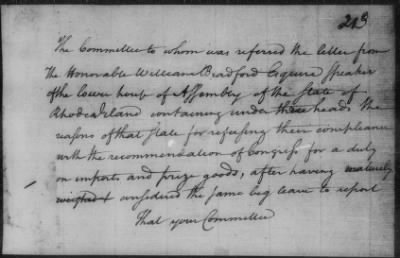 213
The Committee to whom was referred the letter from
the Honorable William Bradford Esquire Speaker
of the lower house of Assembly of the State of
Rhode Island containing under three heads the
reasons of that State for refusing their compliance
with the recommendation of Congress for a duty
on imports and prize goods, after having maturely
weighed & considered the same beg leave to report
That your Committee